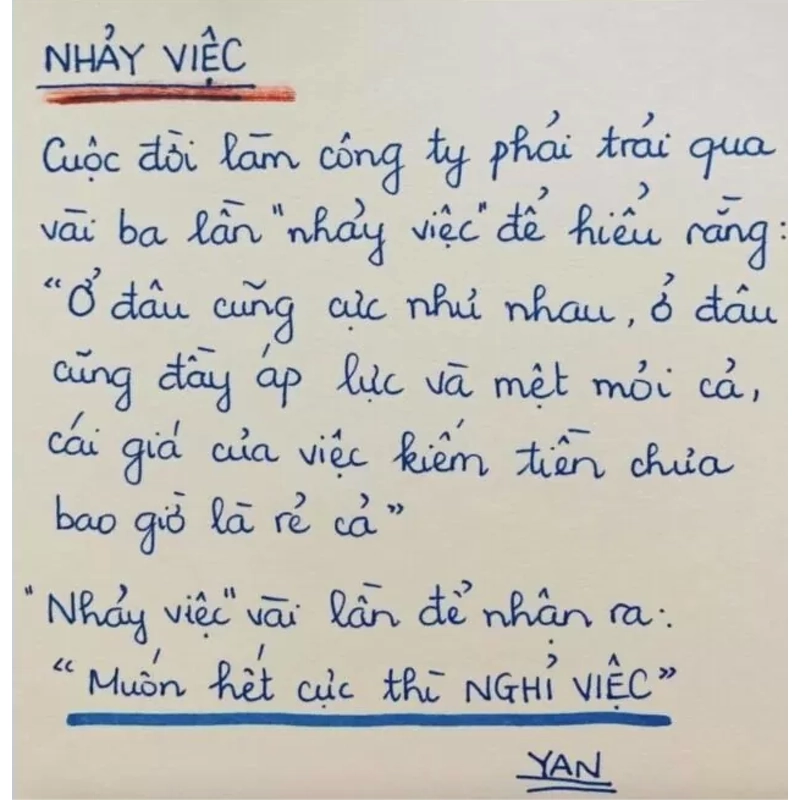 NHẢY VIỆC
Cuộc đời làm công ty phải trải qua
vài ba lần "nhảy việc" để hiểu rằng:
"Ở đâu cũng cực như nhau, ở đâu
cũng đầy áp lực và mệt mỏi cả,
cái giá của việc kiếm tiền chưa
bao giờ là rẻ cả"
"Nhảy việc" vài lần để nhận ra:
"Muốn hết cực thì NGHỈ VIỆC"
YAN